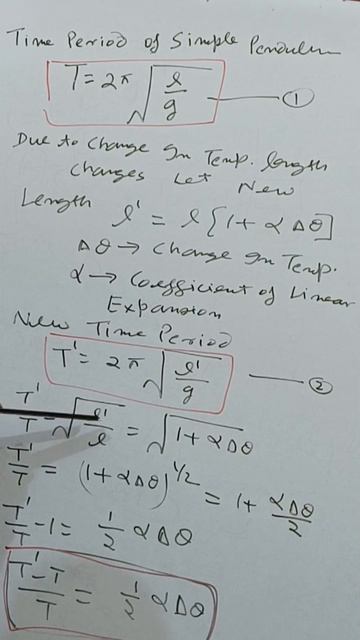 Time Period of Simple Pendulum
T = 2π √(l/g) — ①
Due to Change In Temp. length
Changes Let New
Length l' = l[1 + α Δθ]
Δθ → Change In Temp.
α → Coefficient of Linear
Expansion
New Time Period
T' = 2π √(l'/g) — ②
T'/T = √(l'/l) = √(1 + αΔθ)
T'/T = (1 + αΔθ)^1/2 = 1 + αΔθ/2
T'/T - 1 = 1/2 αΔθ
(T' - T)/T = 1/2 αΔθ